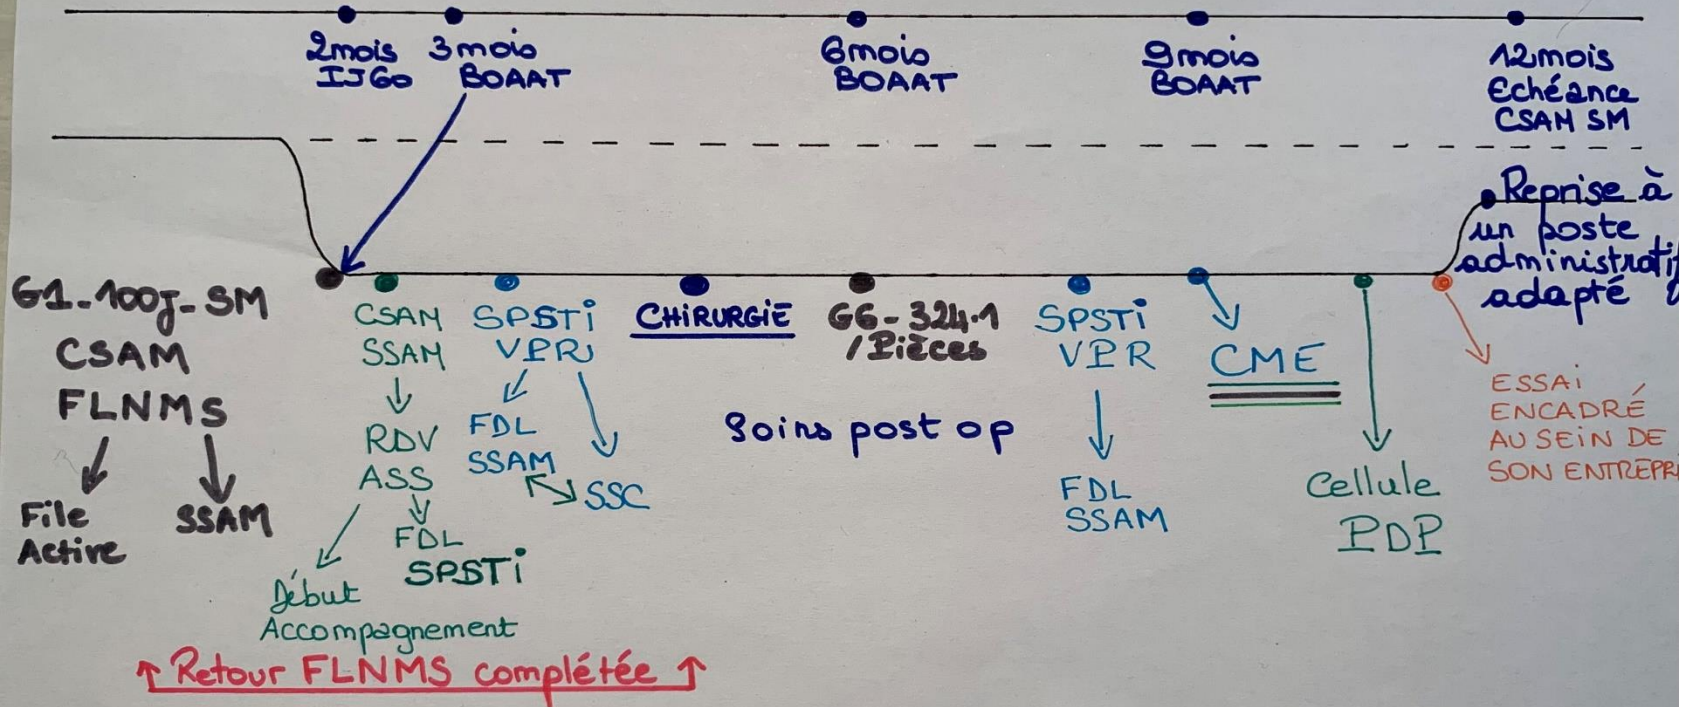 2mois
IJ60
3mois
BOAAT
6mois
BOAAT
9mois
BOAAT
12mois
Echéance
CSAM SM
Reprise à
un poste
administratif
adapté
G1-100j-SM
CSAM
FLNMS
File
Active
SSAM
CSAM
SSAM
RDV
ASS
Début
Accompagnement
FDL
SPSTi
SPSTi
VPR
FDL
SSAM
SSC
CHIRURGIE
Soins post op
G6-324.1
/Pièces
SPSTi
VPR
FDL
SSAM
CME
Cellule
PDP
ESSAI
ENCADRÉ
AU SEIN DE
SON
↑ Retour FLNMS complétée ↑